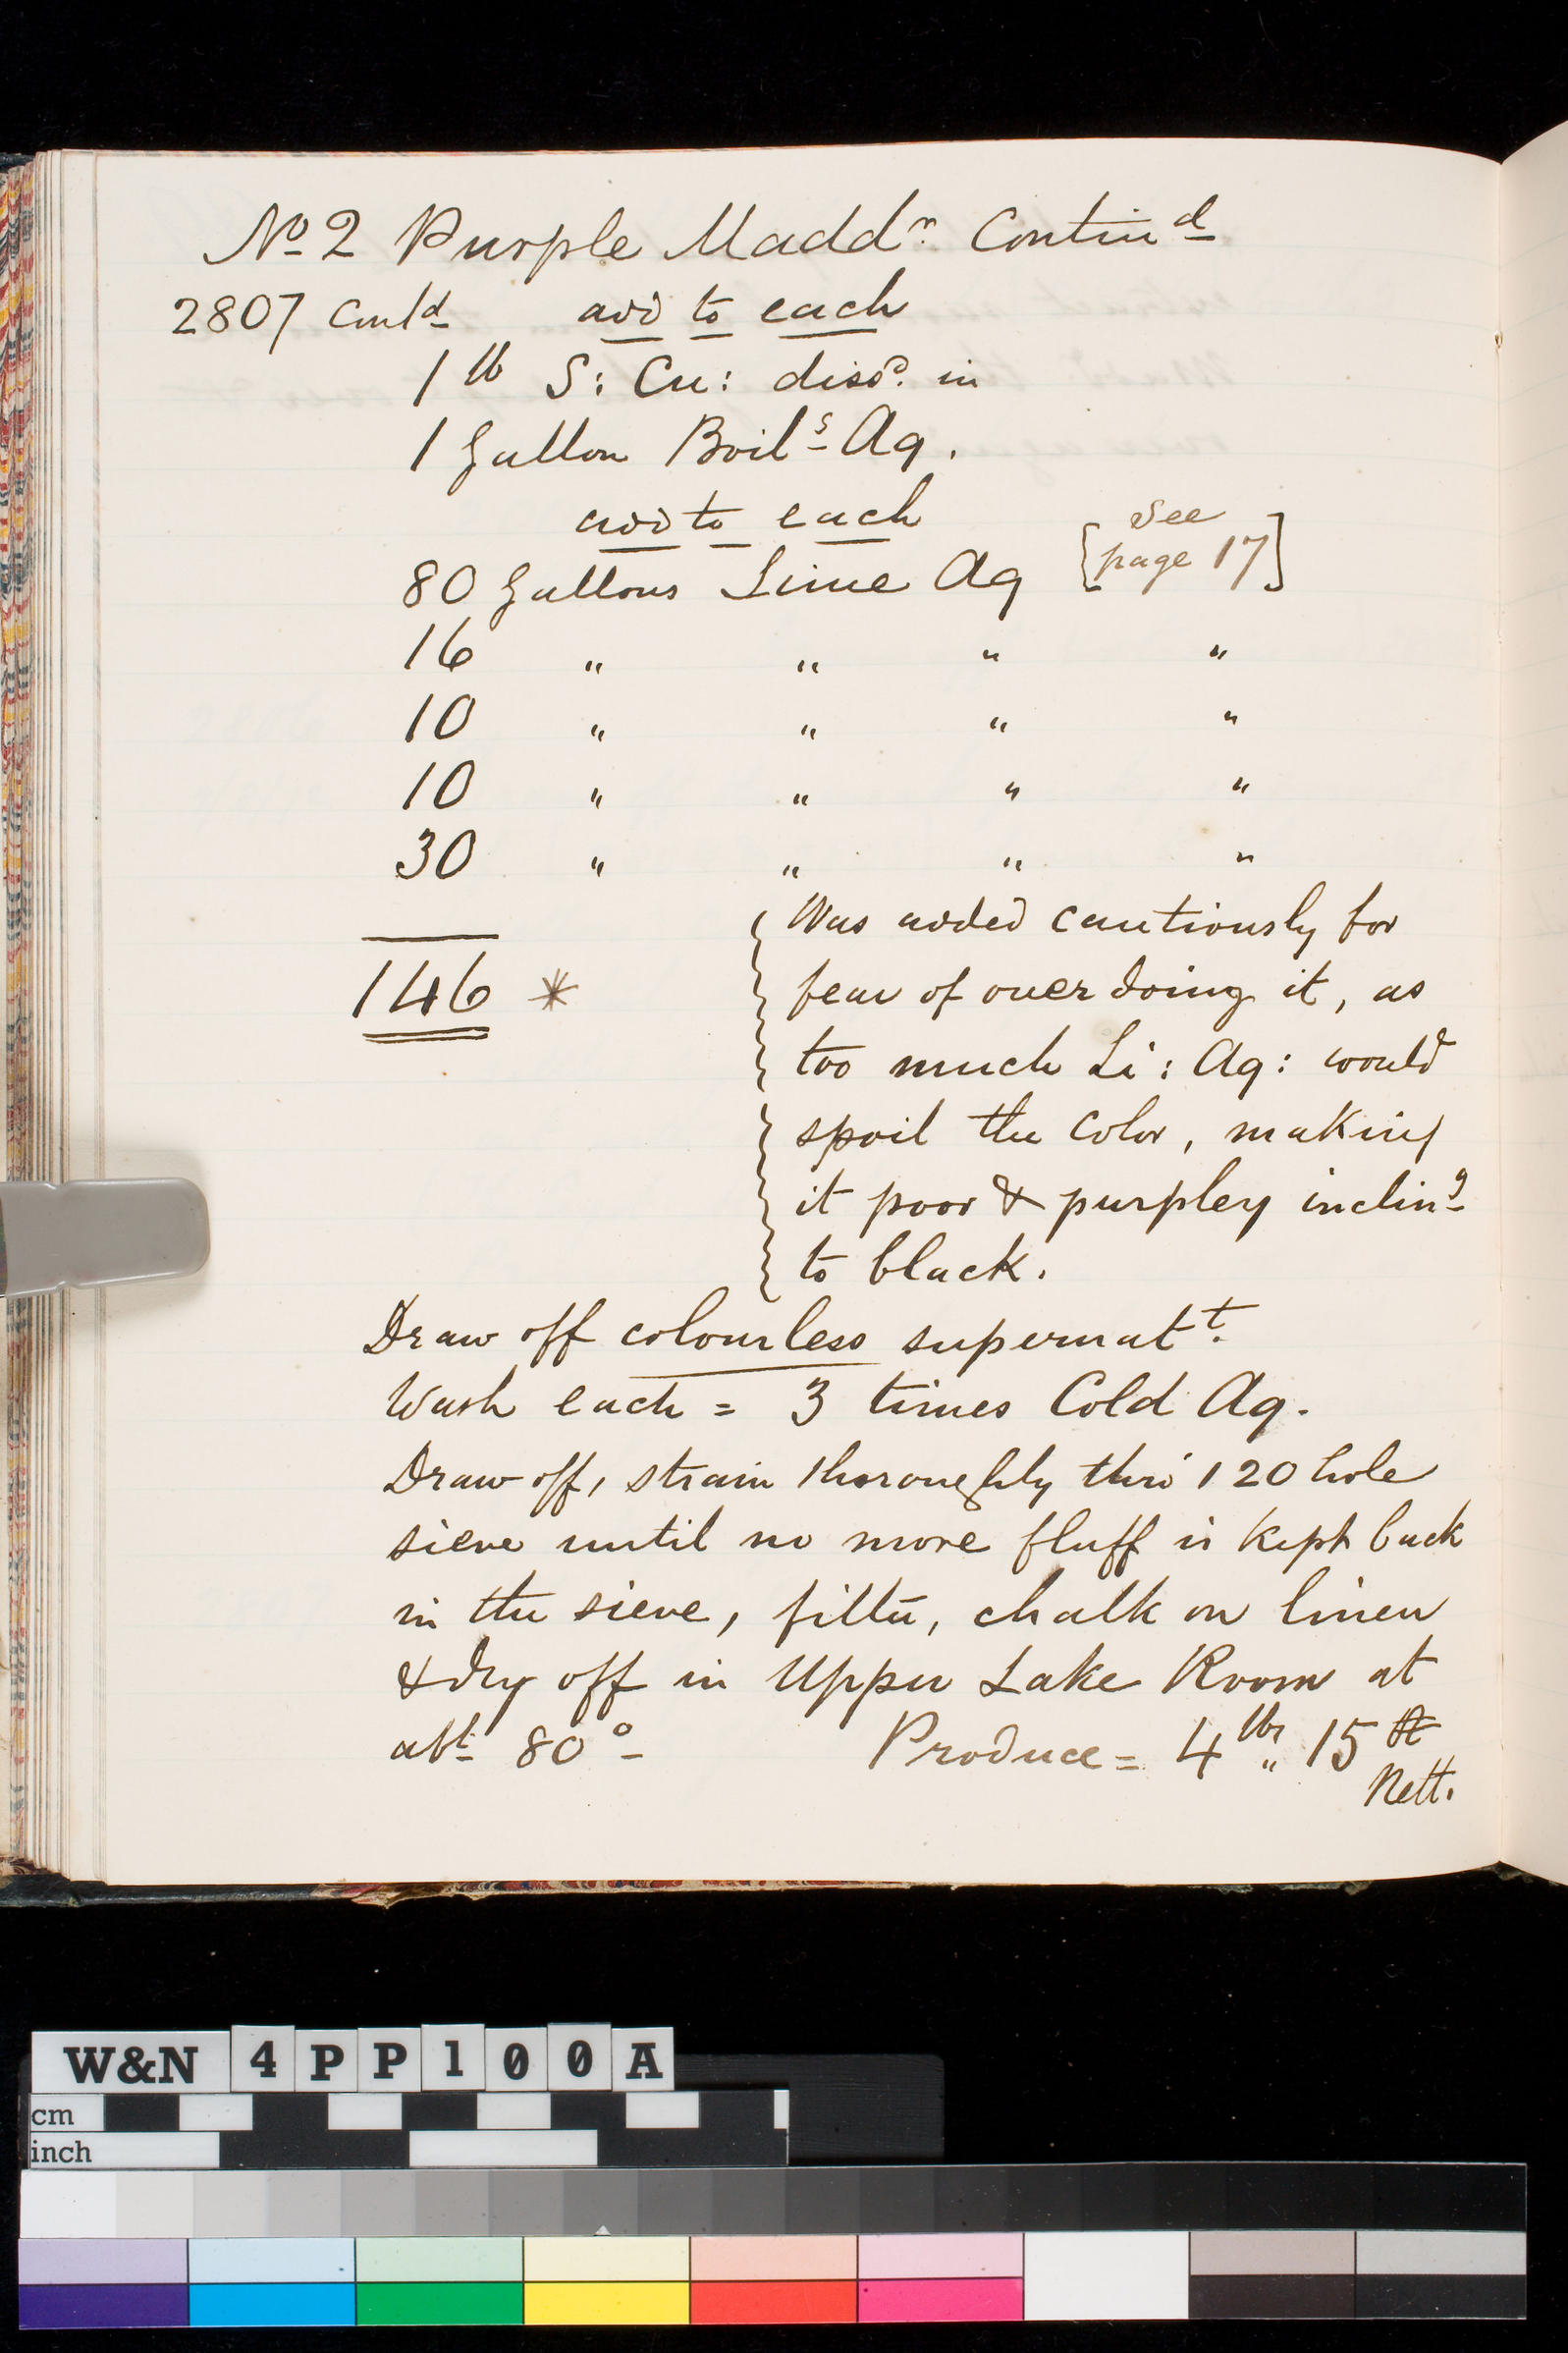 No 2 Purple Maddr. Contind
2807 Contd add to each
1 lb S: Cu: dissd. in
1 Gallon Boilg Aq.
add to each
80 Gallons Lime Aq [See page 17]
16 " " " "
10 " " " "
10 " " " "
30 " " " "
146 *
Was added cautiously for
fear of over doing it, as
too much Li: Aq: would
spoil the Color, making
it poor & purpley incling
to black.
Draw off colourless supernatt.
Wash each = 3 times Cold Aq.
Draw off, strain thoroughly thro' 120 hole
sieve until no more fluff is kept back
in the sieve, filter, chalk on linen
& dry off in Upper Lake Room at
abt 80° Produce = 4 lbs " 15
Nett.
W&N 4PP100A
cm
inch